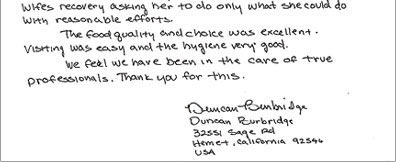 wifes recovery asking her to do only what she could do
with reasonable efforts.
The food quality and choice was excellent.
Visiting was easy and the hygiene very good.
We feel we have been in the care of true
professionals. Thank you for this.
Duncan Burbridge
Duncan Burbridge
32551 Sage Rd
Hemet, California 92544
USA